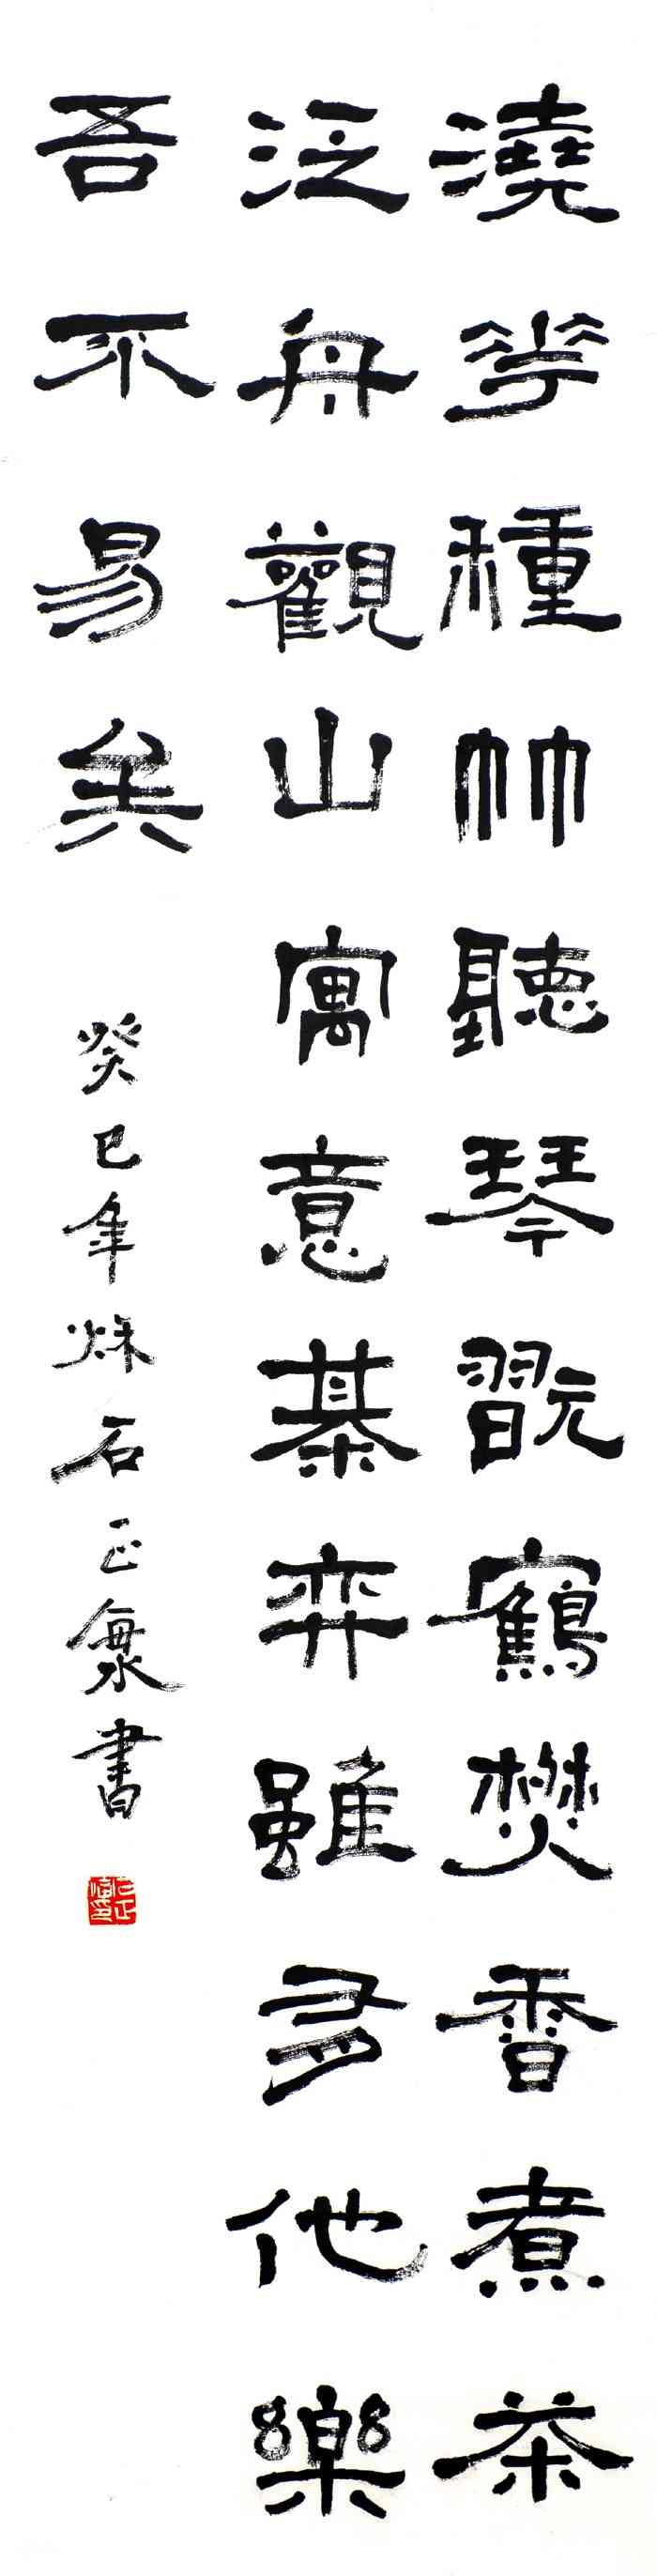 澆華種竹聽琴翫鶴焚香煮茶
泛舟觀山寓意棊弈雖多他樂
吾不易矣
癸巳年烁石正書